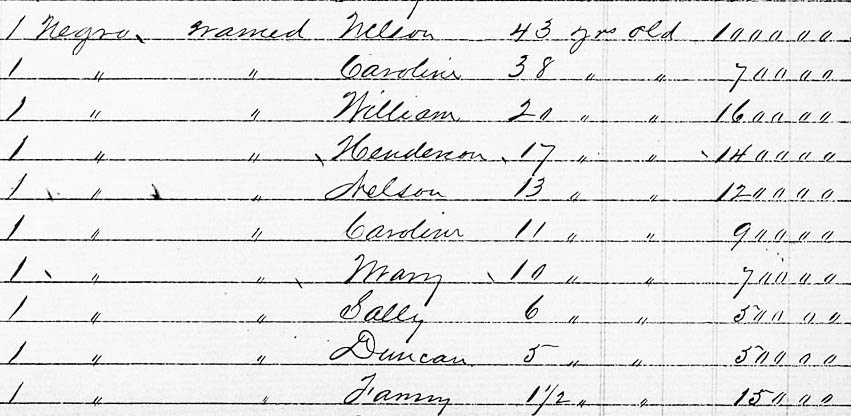 1 Negro named Nelson 43 yrs old 1000 00
1 " " Caroline 38 " " 700 00
1 " " William 20 " " 1600 00
1 " " Henderson 17 " " 1400 00
1 " " Nelson 13 " " 1200 00
1 " " Caroline 11 " " 900 00
1 " " Mary 10 " " 700 00
1 " " Sally 6 " " 500 00
1 " " Duncan 5 " " 500 00
1 " " Fanny 1 1/2 " " 150 00